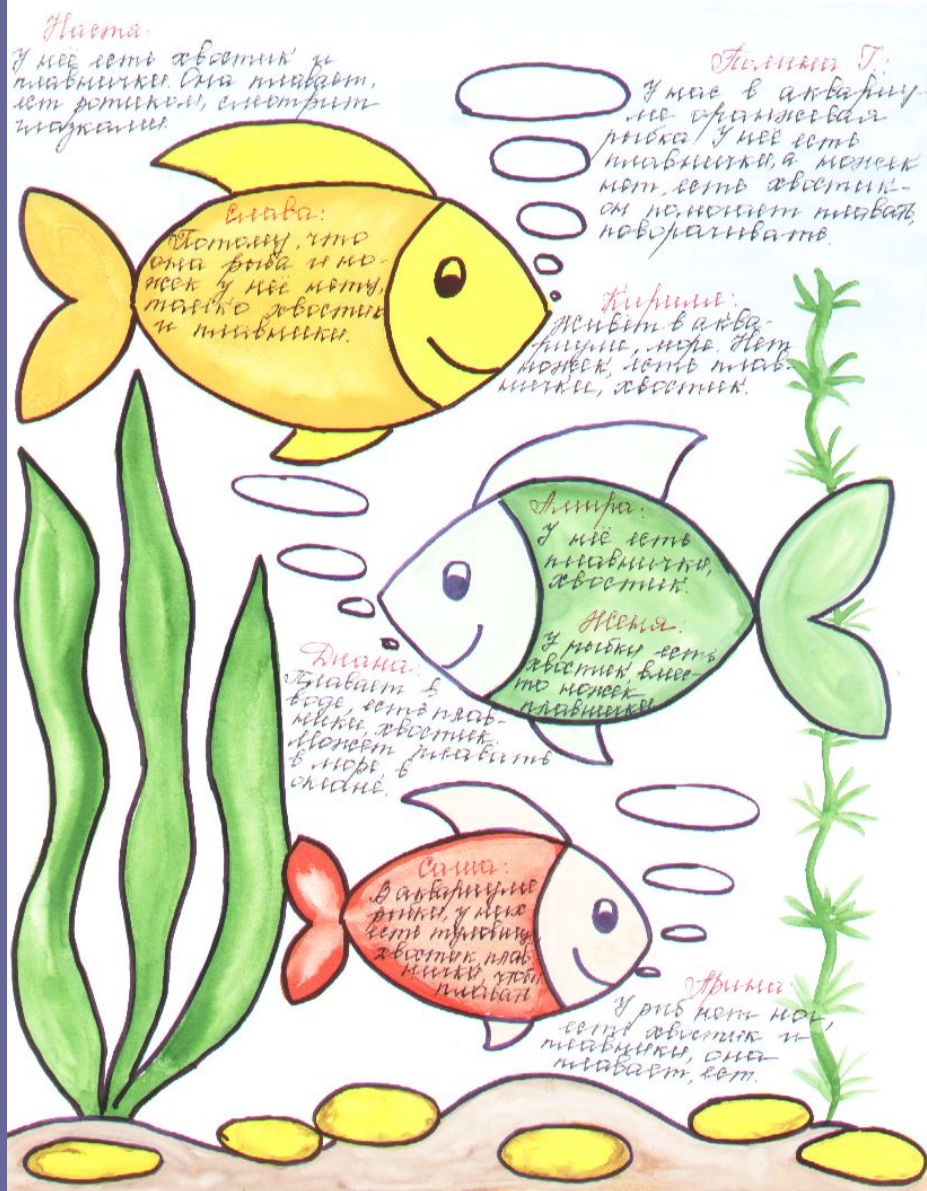 Настя:
У неё есть хвостик и
плавнички. Она плавает,
ест ротиком, смотрит
глазками.
Полина Г.:
У нас в аквариу-
ме оранжевая
рыбка. У неё есть
плавнички, а ножек
нет, есть хвостик -
он помогает плавать,
поворачивать.
Слава:
Потому, что
она рыба и но-
жек у неё нету,
только хвостик
и плавники.
Кирилл:
Живёт в аква-
риуме, море. Нет
ножек, есть плав-
нички, хвостик.
Амира:
У неё есть
плавнички,
хвостик.
Женя:
У рыбки есть
хвостик, вмес-
то ножек
плавнички
Диана:
Плавает в
воде, есть плав-
ники, хвостик.
Может плавать
в море, в
океане.
Саша:
В аквариуме
рыбки, у них
есть туловище,
хвостик, плав-
нички, чтоб
плавать
Арина:
У рыб нет ног,
есть хвостик и
плавники, она
плавает, ест.